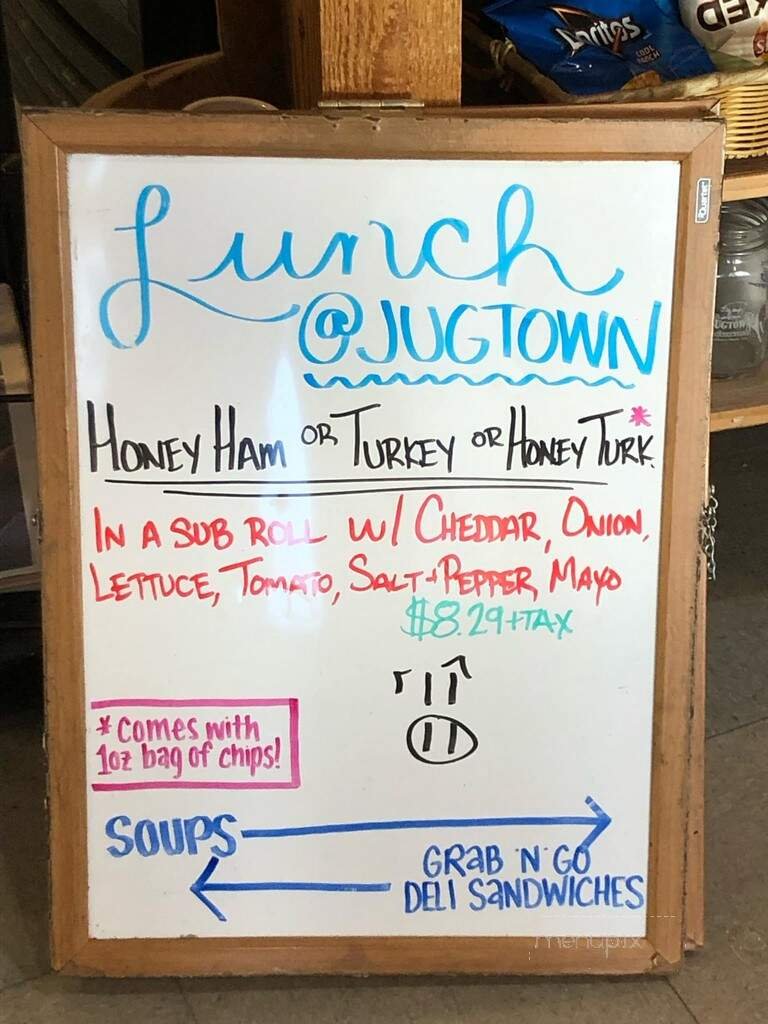 Doritos
COOL RANCH
KED
Quartet
Lunch
@JUGTOWN
HONEY HAM OR TURKEY OR HONEY TURK.*
IN A SUB ROLL W/ CHEDDAR, ONION,
LETTUCE, TOMATO, SALT + PEPPER, MAYO
$8.29+TAX
*comes with
1oz bag of chips!
SOUPS
GRaB 'N' GO
DELI SaNDWICHES
menupix